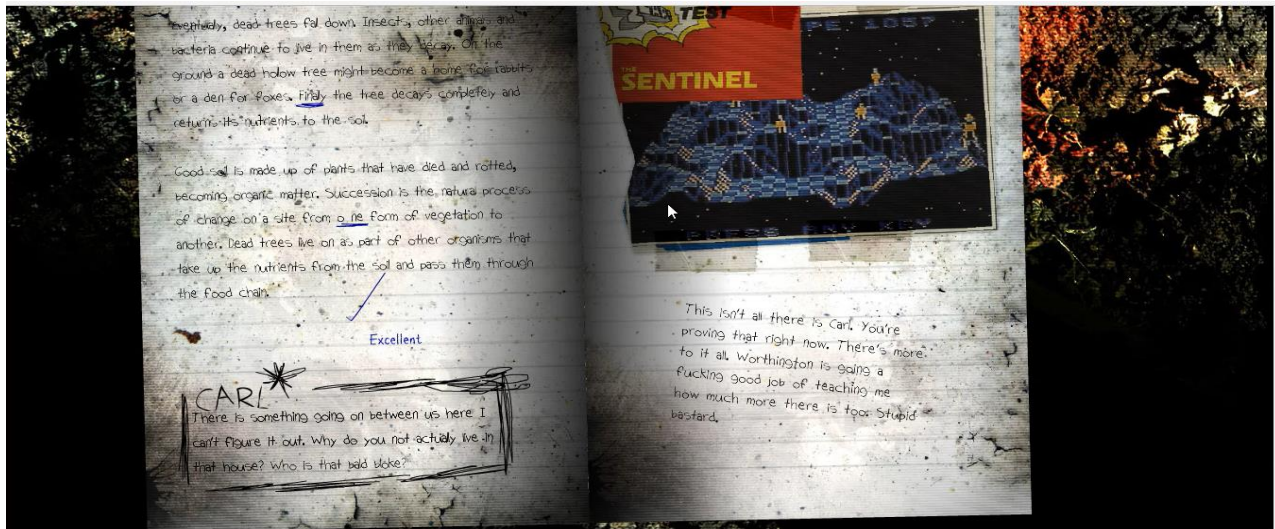 Eventually, dead trees fall down. Insects, other animals and
bacteria continue to live in them as they decay. On the
ground a dead hollow tree might become a home for rabbits
or a den for foxes. Finaly the tree decays completely and
returns its nutrients to the soil.
Good soil is made up of plants that have died and rotted,
becoming organic matter. Succession is the natural process
of change on a site from o ne form of vegetation to
another. Dead trees live on as part of other organisms that
take up the nutrients from the soil and pass them through
the food chain.
Excellent
CARL*
There is something going on between us here I
can't figure it out. Why do you not actually live in
that house? Who is that bald bloke?
TEST
THE
SENTINEL
PE 1057
PRESS ANY KEY
This isn't all there is Carl. You're
proving that right now. There's more
to it all. Worthington is going a
fucking good job of teaching me
how much more there is too. Stupid
bastard.